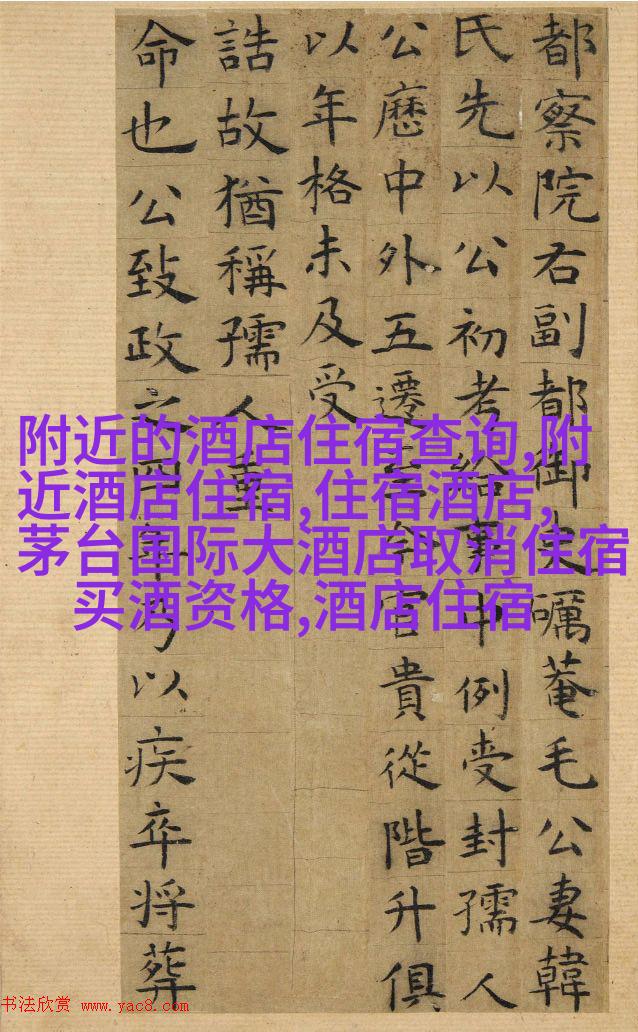 都察院右副都御史礪菴毛公妻韓
氏先以公初考給事中例受封孺人
公歷中外五遷至今官貴從階升俱
以年格未及受
誥故猶稱孺人重
命也公致政之四年乃以疾卒將葬
附近的酒店住宿查询,附
近酒店住宿,住宿酒店,
茅台国际大酒店取消住宿
买酒资格,酒店住宿
书法欣赏 www.yac8.com